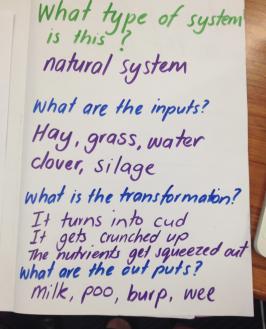 What type of system
is this?
natural system
What are the inputs?
Hay, grass, water
clover, silage
What is the transformation?
It turns into cud
It gets crunched up
The nutrients get squeezed out
What are the out puts?
milk, poo, burp, wee